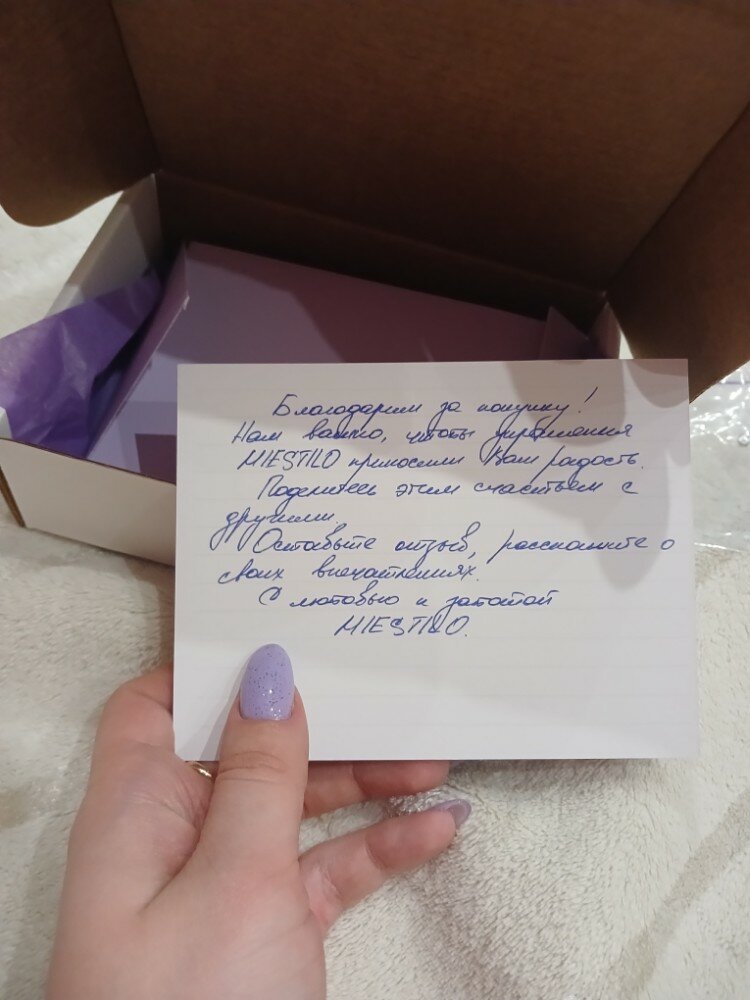 Благодарим за покупку!
Нам важно, чтобы украшения
MIESTILO приносили Вам радость.
Поделитесь этим счастьем с
другими.
Оставьте отзыв, расскажите о
своих впечатлениях.
С любовью и заботой
MIESTILO.